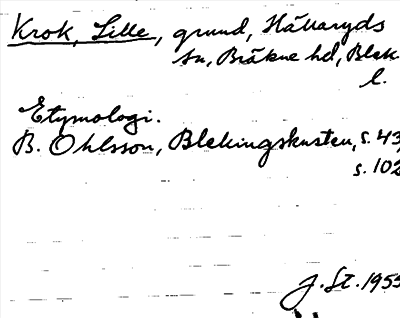 Krok, Lille, grund, Hällaryds
sn, Bräkne hd, Blek.
l.
Etymologi.
B. Ohlsson, Blekingskusten, s. 43,
s. 102
J. St. 1955